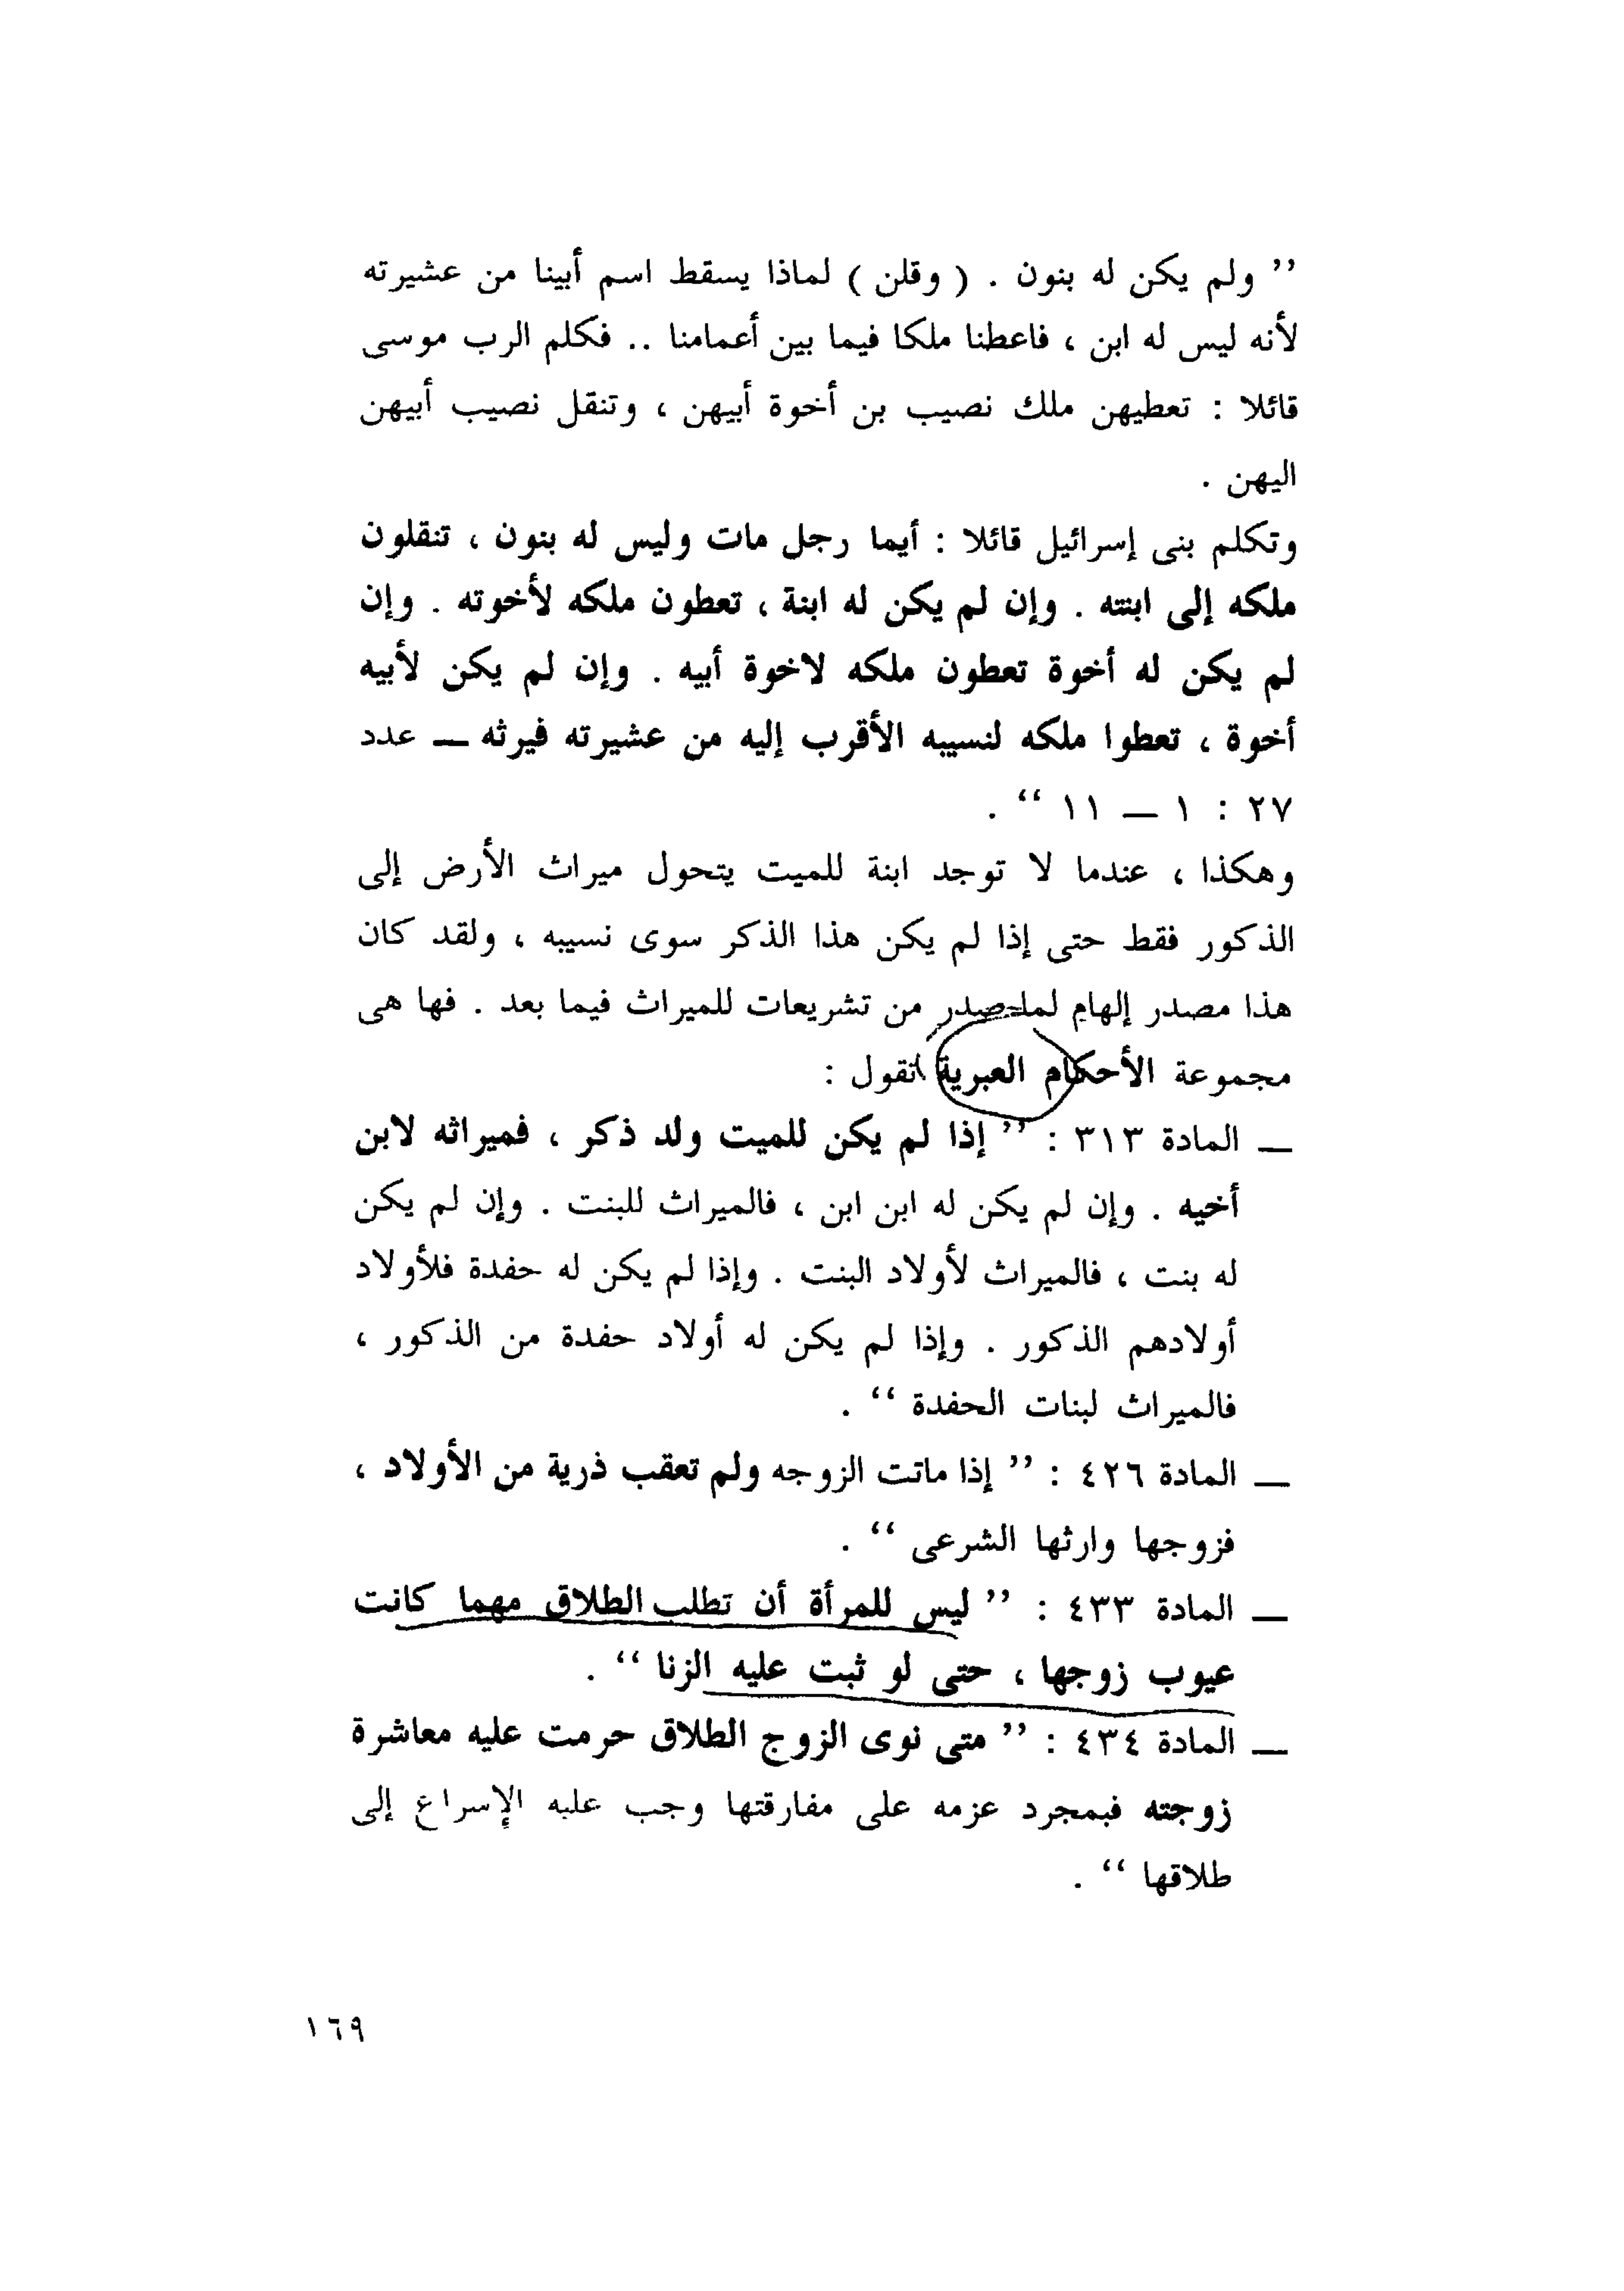 ’’ ولم يكن له بنون . ( وقلن ) لماذا يسقط اسم أبينا من عشيرته
لأنه ليس له ابن ، فاعطنا ملكا فيما بين أعمامنا .. فكلم الرب موسى
قائلا : تعطيهن ملك نصيب بن أخوة أبيهن ، وتنقل نصيب أبيهن
اليهن .
وتكلم بنى إسرائيل قائلا : أيما رجل مات وليس له بنون ، تنقلون
ملكه إلى ابنته . وإن لم يكن له ابنة ، تعطون ملكه لأخوته . وإن
لم يكن له أخوة تعطون ملكه لاخوة أبيه . وإن لم يكن لأبيه
أخوة ، تعطوا ملكه لنسيبه الأقرب إليه من عشيرته فيرثه — عدد
٢٧ : ١ — ١١ ‘‘ .
وهكذا ، عندما لا توجد ابنة للميت يتحول ميراث الأرض إلى
الذكور فقط حتى إذا لم يكن هذا الذكر سوى نسيبه ، ولقد كان
هذا مصدر إلهام لما صدر من تشريعات للميراث فيما بعد . فها هى
مجموعة الأحكام العبرية تقول :
— المادة ٣١٣ : ’’ إذا لم يكن للميت ولد ذكر ، فميراثه لابن
أخيه . وإن لم يكن له ابن ابن ، فالميراث للبنت . وإن لم يكن
له بنت ، فالميراث لأولاد البنت . وإذا لم يكن له حفدة فلأولاد
أولادهم الذكور . وإذا لم يكن له أولاد حفدة من الذكور ،
فالميراث لبنات الحفدة ‘‘ .
— المادة ٤٢٦ : ’’ إذا ماتت الزوجه ولم تعقب ذرية من الأولاد ،
فزوجها وارثها الشرعى ‘‘ .
— المادة ٤٣٣ : ’’ ليس للمرأة أن تطلب الطلاق مهما كانت
عيوب زوجها ، حتى لو ثبت عليه الزنا ‘‘ .
— المادة ٤٣٤ : ’’ متى نوى الزوج الطلاق حرمت عليه معاشرة
زوجته فبمجرد عزمه على مفارقتها وجب عليه الإسراع إلى
طلاقها ‘‘ .
١٦٩